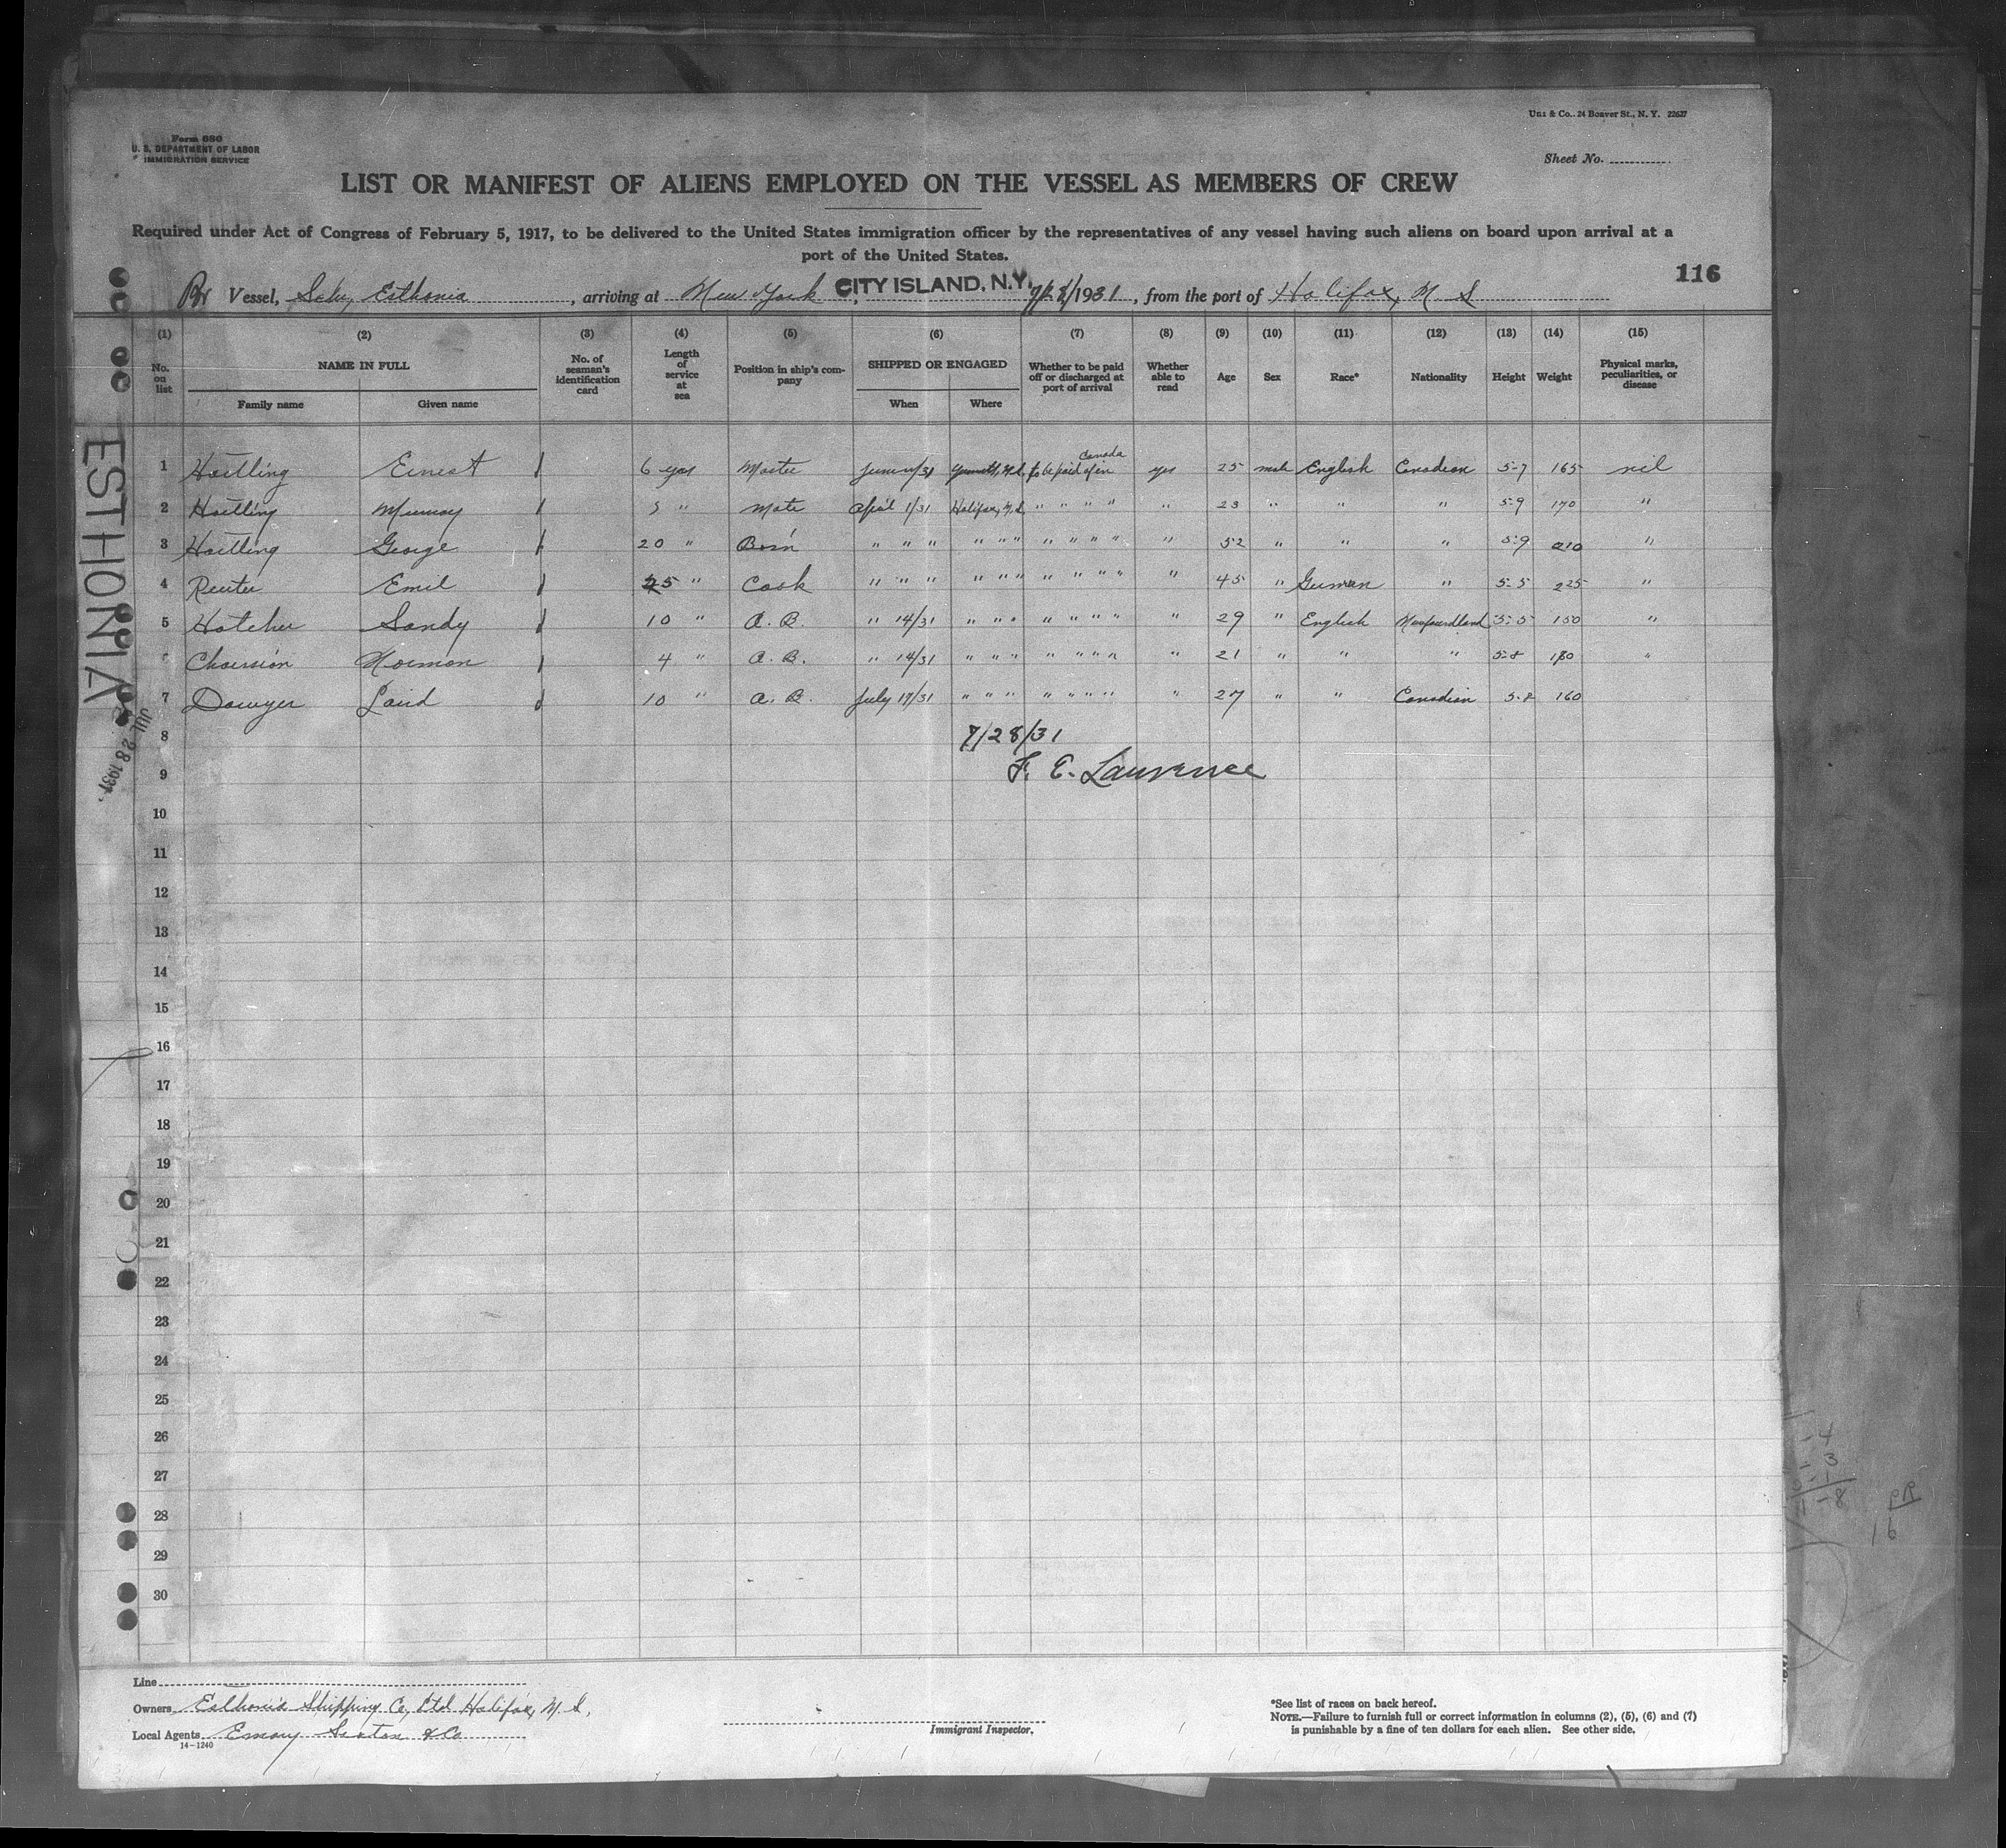 Uns & Co.. 24 Beaver St., N. Y. 22627
Form 680
U. S. DEPARTMENT OF LABOR
IMMIGRATION SERVICE
Sheet No.
LIST OR MANIFEST OF ALIENS EMPLOYED ON THE VESSEL AS MEMBERS OF CREW
Required under Act of Congress of February 5, 1917, to be delivered to the United States immigration officer by the representatives of any vessel having such aliens on board upon arrival at a
port of the United States.
116
Br Vessel, Schr, Esthonia, arriving at New York CITY ISLAND, N.Y. 7/28/1931, from the port of Halifax, N. S
(1) (2) (3) (4) (5) (6) (7) (8) (9) (10) (11) (12) (13) (14) (15)
No. on list NAME IN FULL No. of seaman's identification card Length of service at sea Position in ship's com-pany SHIPPED OR ENGAGED Whether to be paid off or discharged at port of arrival Whether able to read Age Sex Race* Nationality Height Weight Physical marks, peculiarities, or disease
Family name Given name When Where
1 Hartling Ernest 6 yrs Master June 11/31 Yarmouth, N.S. to be paid off in Canada yes 25 male English Canadian 5-7 165 nil
2 Hartling Murray 5 " Mate April 1/31 Halifax, N.S. " " " " " 23 " " " 5-9 170 "
3 Hartling George 20 " Bosin " " " " " " " " " " " 52 " " " 5-9 210 "
4 Reuter Emil 25 " Cook " " " " " " " " " " " 45 " German " 5-5 225 "
5 Hatcher Sandy 10 " A. B. " 14/31 " " " " " " " " 29 " English Newfoundland 5-5 150 "
Norman 4 " A. B. " 14/31 " " " " " " " " 21 " " " 5-8 180 "
7 Dawyer Laird 10 " A. B. July 17/31 " " " " " " " " 27 " " Canadian 5-8 160
8 7/28/31
9 F. E. Laurence
10
11
12
13
14
15
16
17
18
19
20
21
22
23
24
25
26
27
28
29
30
ESTHONIA
JUL 28 1931
Line
Owners Esthonia Shipping Co, Ltd Halifax, N. S.
Local Agents Emory Sexton & Co
14-1240
Immigrant Inspector.
*See list of races on back hereof.
NOTE.—Failure to furnish full or correct information in columns (2), (5), (6) and (7)
is punishable by a fine of ten dollars for each alien. See other side.